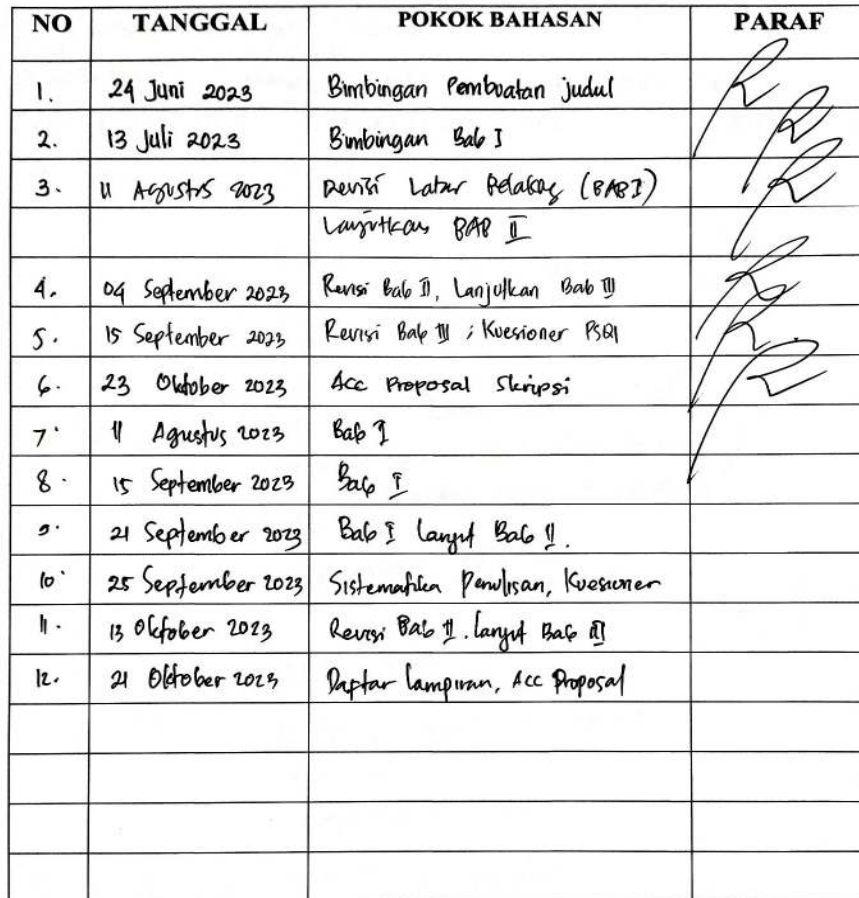 NO TANGGAL POKOK BAHASAN PARAF
1. 24 Juni 2023 Bimbingan Pembuatan judul
2. 13 Juli 2023 Bimbingan Bab I
3. 11 Agustus 2023 Revisi Latar Belakang (BAB I)
Lanjutkan BAB II
4. 04 September 2023 Revisi Bab II, Lanjutkan Bab III
5. 15 September 2023 Revisi Bab III ; Kuesioner PSQI
6. 23 Oktober 2023 Acc Proposal Skripsi
7. 11 Agustus 2023 Bab I
8. 15 September 2023 Bab I
9. 21 September 2023 Bab I lanjut Bab II.
10. 25 September 2023 Sistematika Penulisan, Kuesioner
11. 13 Oktober 2023 Revisi Bab II. lanjut Bab III
12. 21 Oktober 2023 Daftar lampiran, Acc Proposal